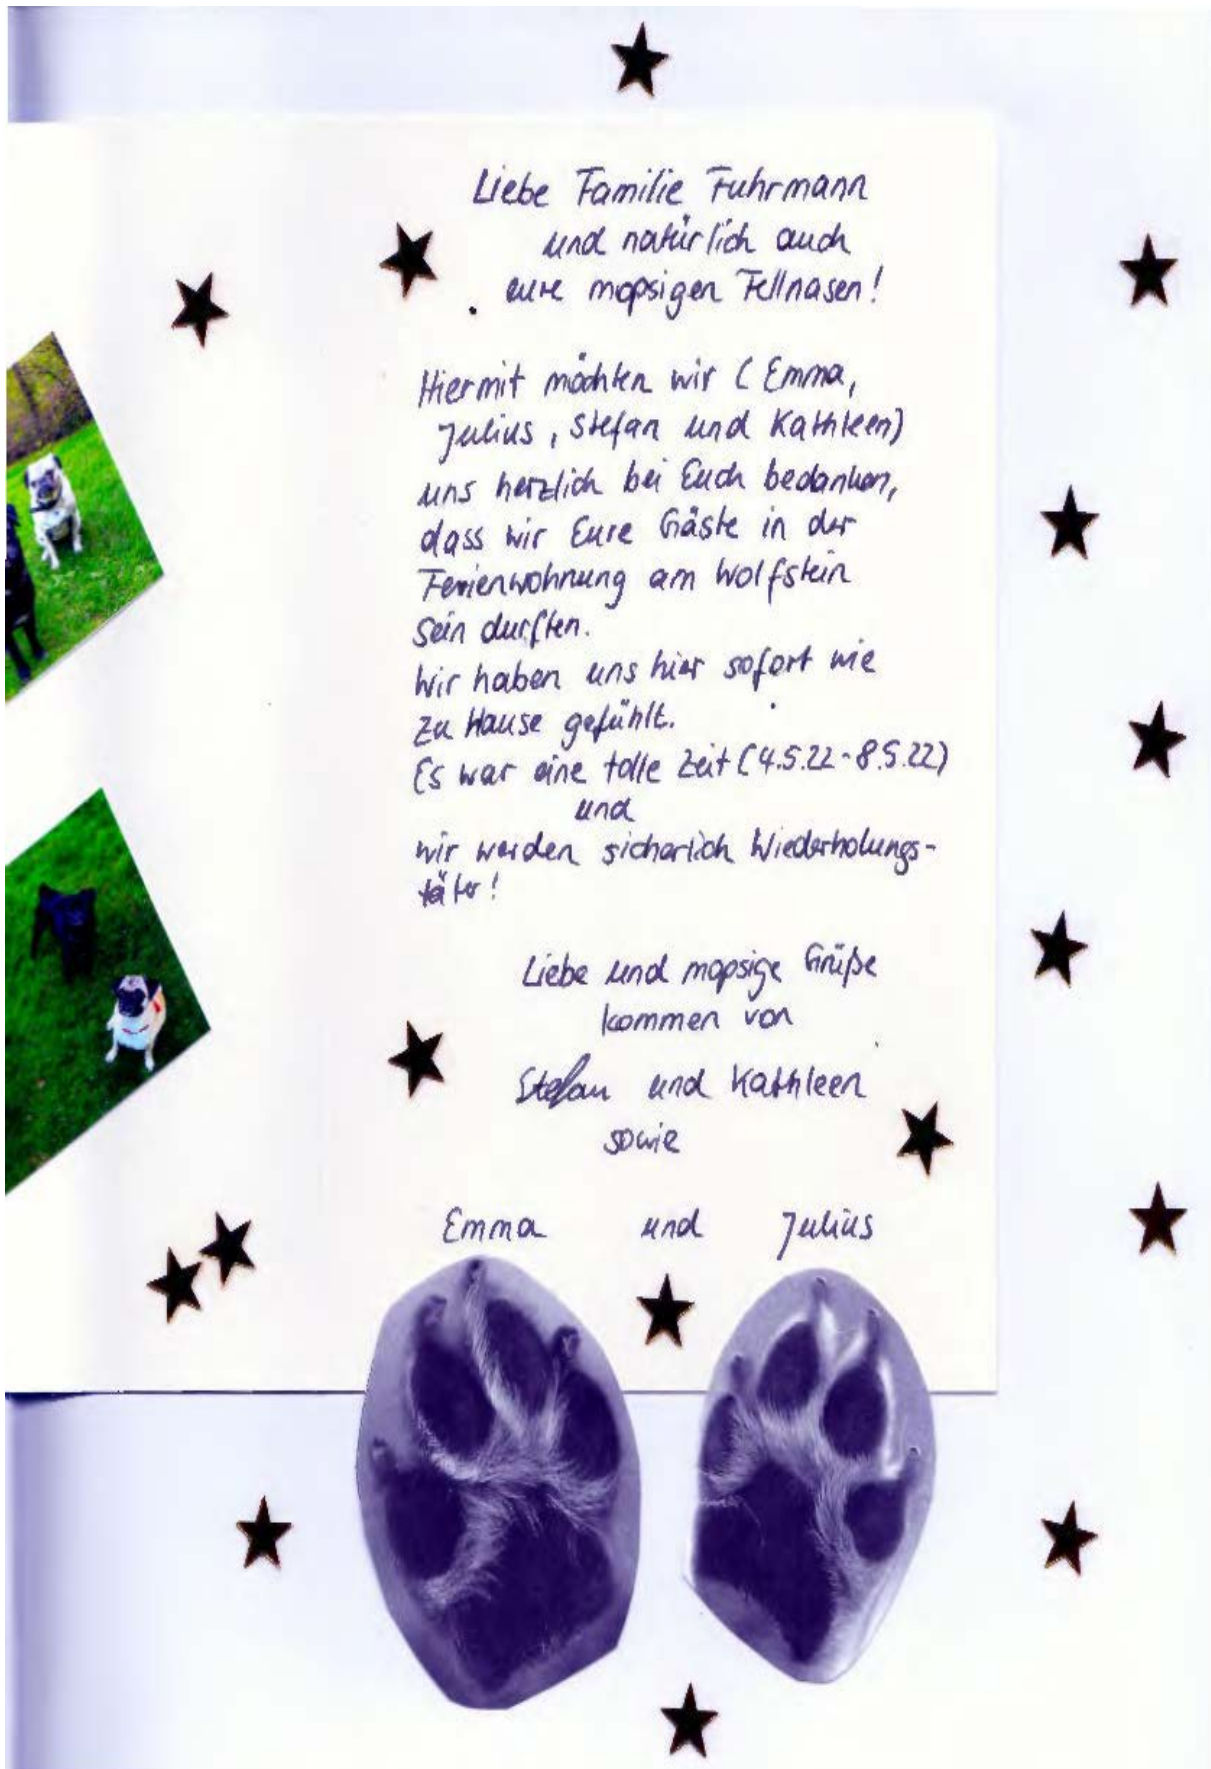 Liebe Familie Fuhrmann
und natürlich auch
eure mopsigen Fellnasen!
Hiermit möchten wir (Emma,
Julius, Stefan und Kathleen)
uns herzlich bei Euch bedanken,
dass wir Eure Gäste in der
Ferienwohnung am Wolfstein
sein durften.
Wir haben uns hier sofort wie
zu Hause gefühlt.
Es war eine tolle Zeit (4.5.22-8.5.22)
und
wir werden sicherlich Wiederholungs-
täter!
Liebe und mopsige Grüße
kommen von
Stefan und Kathleen
sowie
Emma und Julius